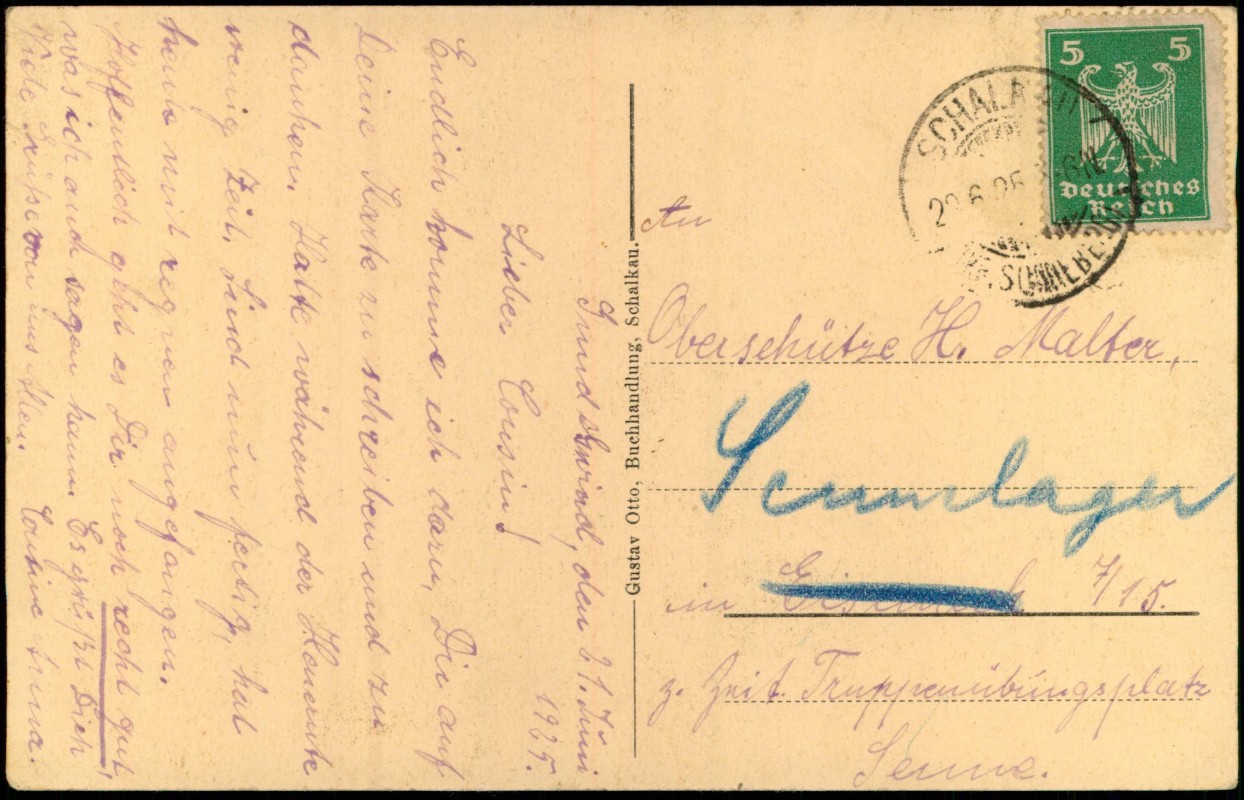 Grundswind, den 21. Juni
1925.
Lieber Cousin!
Endlich komme ich dazu, Dir auf
Deine Karte zu schreiben und zu
danken. Hatte während der Heuernte
wenig Zeit. Sind nun fertig, hat
heute mit regnen angefangen.
Hoffentlich geht es Dir noch recht gut,
was ich auch sagen kann. Es grüßt Dich
Viele Grüße von uns Allen. Cousine
Gustav Otto, Buchhandlung, Schalkau.
5 5
Deutsches
Reich
SCHALKAU
6.25
An
Oberschütze H. Malter,
Sennelager
in Eisenach 7/15.
z. Zeit Truppenübungsplatz
Senne.